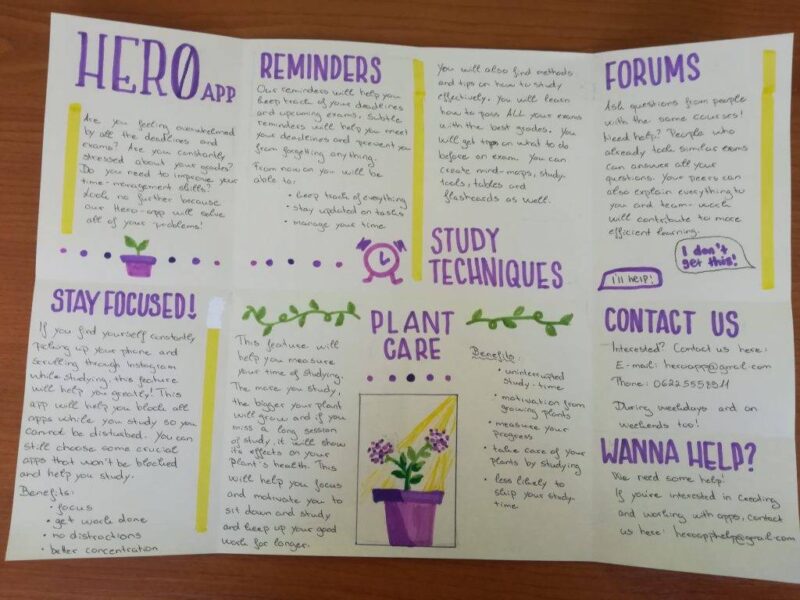 HERO APP
Are you feeling overwhelmed
by all the deadlines and
exams? Are you constantly
stressed about your grades?
Do you need to improve your
time-management skills?
Look no further because
our Hero-app will solve
all of your problems!
REMINDERS
Our reminders will help you
keep track of your deadlines
and upcoming exams. Subtle
reminders will help you meet
your deadlines and prevent you
from forgetting anything.
From now on you will be
able to:
• keep track of everything
• stay updated on tasks
• manage your time
You will also find methods
and tips on how to study
effectively. You will learn
how to pass ALL your exams
with the best grades. You
will get tips on what to do
before an exam. You can
create mind-maps, study-
tools, tables and
flashcards as well.
STUDY
TECHNIQUES
FORUMS
Ask questions from people
with the same courses!
Need help? People who
already took similar exams
can answer all your
questions. Your peers can
also explain everything to
you and team-work
will contribute to more
efficient learning.
I don't
get this!
I'll help!
STAY FOCUSED!
If you find yourself constantly
picking up your phone and
scrolling through Instagram
while studying, this feature
will help you greatly! This
app will help you block all
apps while you study so you
cannot be disturbed. You can
still choose some crucial
apps that won't be blocked
and help you study.
Benefits:
• focus
• get work done
• no distractions
• better concentration
PLANT
CARE
This feature will
help you measure
your time of studying.
The more you study,
the bigger your plant
will grow and if you
miss a long session
of study, it will show
it's effects on your
plant's health. This
will help you focus
and motivate you to
sit down and study
and keep up your good
work for longer.
Benefits:
• uninterrupted
study-time
• motivation from
growing plants
• measure your
progress
• take care of your
plants by studying
• less likely to
skip your study-
time
CONTACT US
Interested? Contact us here:
E-mail: heroapp@gmail.com
Phone: 0622558811
During weekdays and on
weekends too!
WANNA HELP?
We need some help!
If you're interested in creating
and working with apps, contact
us here: heroapphelp@gmail.com